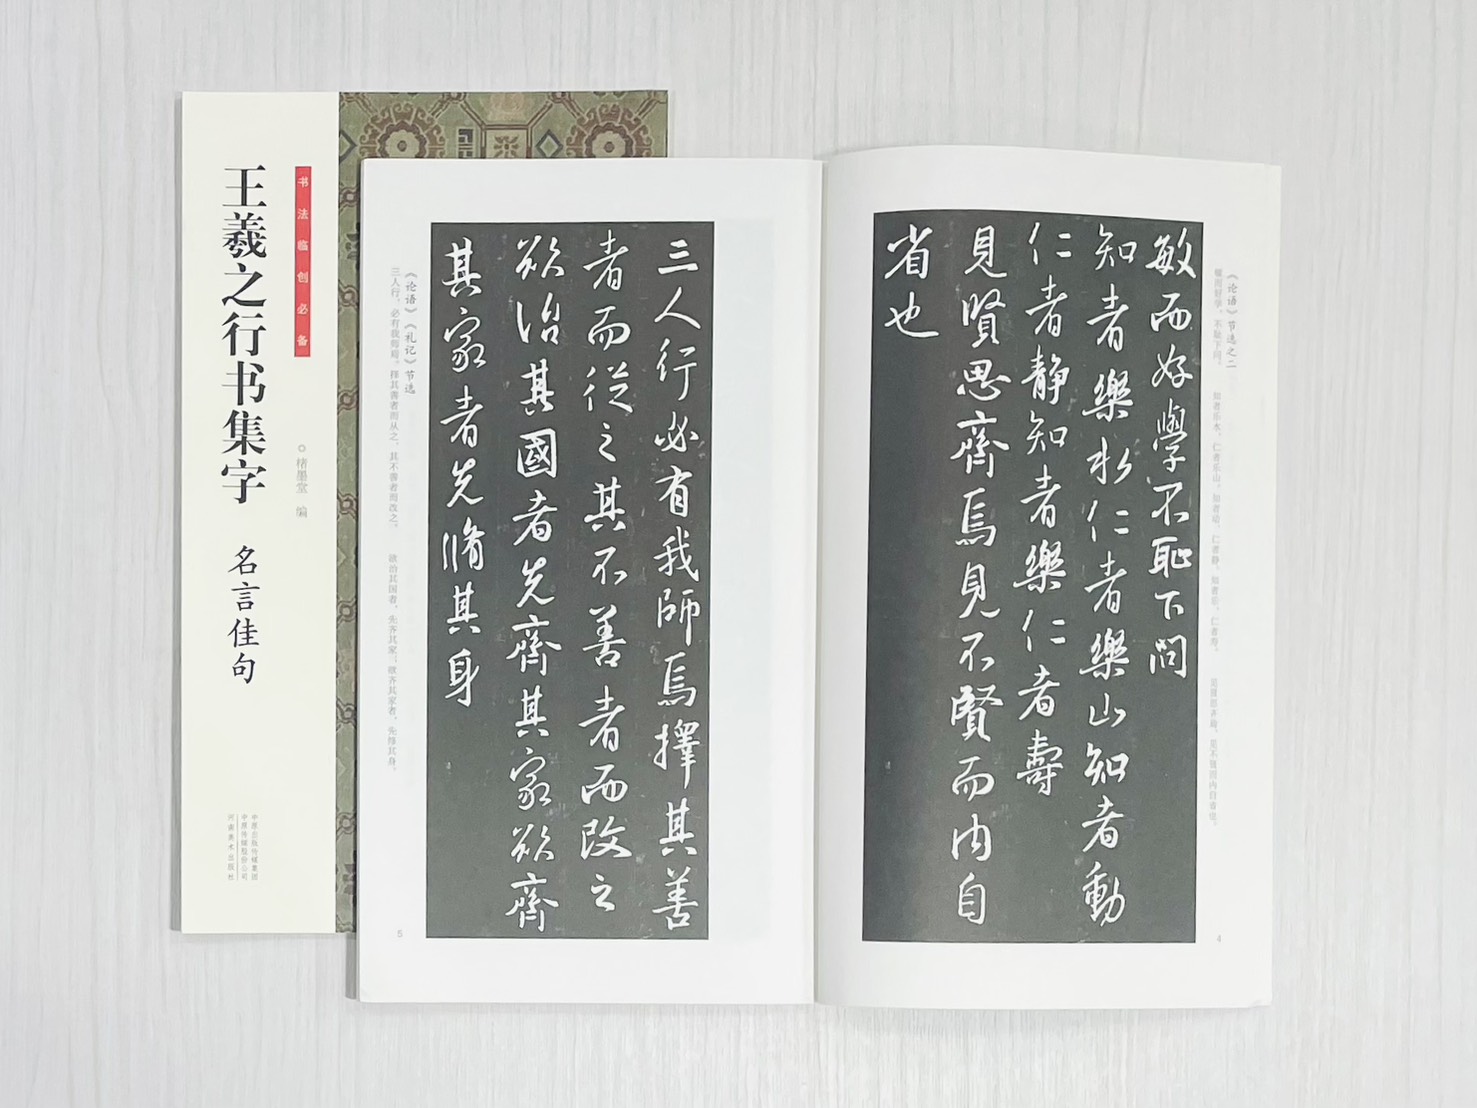 书法临创必备
王羲之行书集字 名言佳句
◎楮墨堂 编
中原出版传媒集团
中原传媒股份公司
河南美术出版社
《论语》节选之二
敏而好学，不耻下问。 知者乐水，仁者乐山。知者动，仁者静。知者乐，仁者寿。 见贤思齐焉，见不贤而内自省也。
敏而好學不恥下問
知者樂水仁者樂山知者動
仁者靜知者樂仁者壽
見賢思齊焉見不賢而内自
省也
4
三人行必有我師焉擇其善
者而從之其不善者而改之
欲治其國者先齊其家欲齊
其家者先脩其身
《论语》《礼记》节选
三人行，必有我师焉。择其善者而从之，其不善者而改之。 欲治其国者，先齐其家；欲齐其家者，先修其身。
5